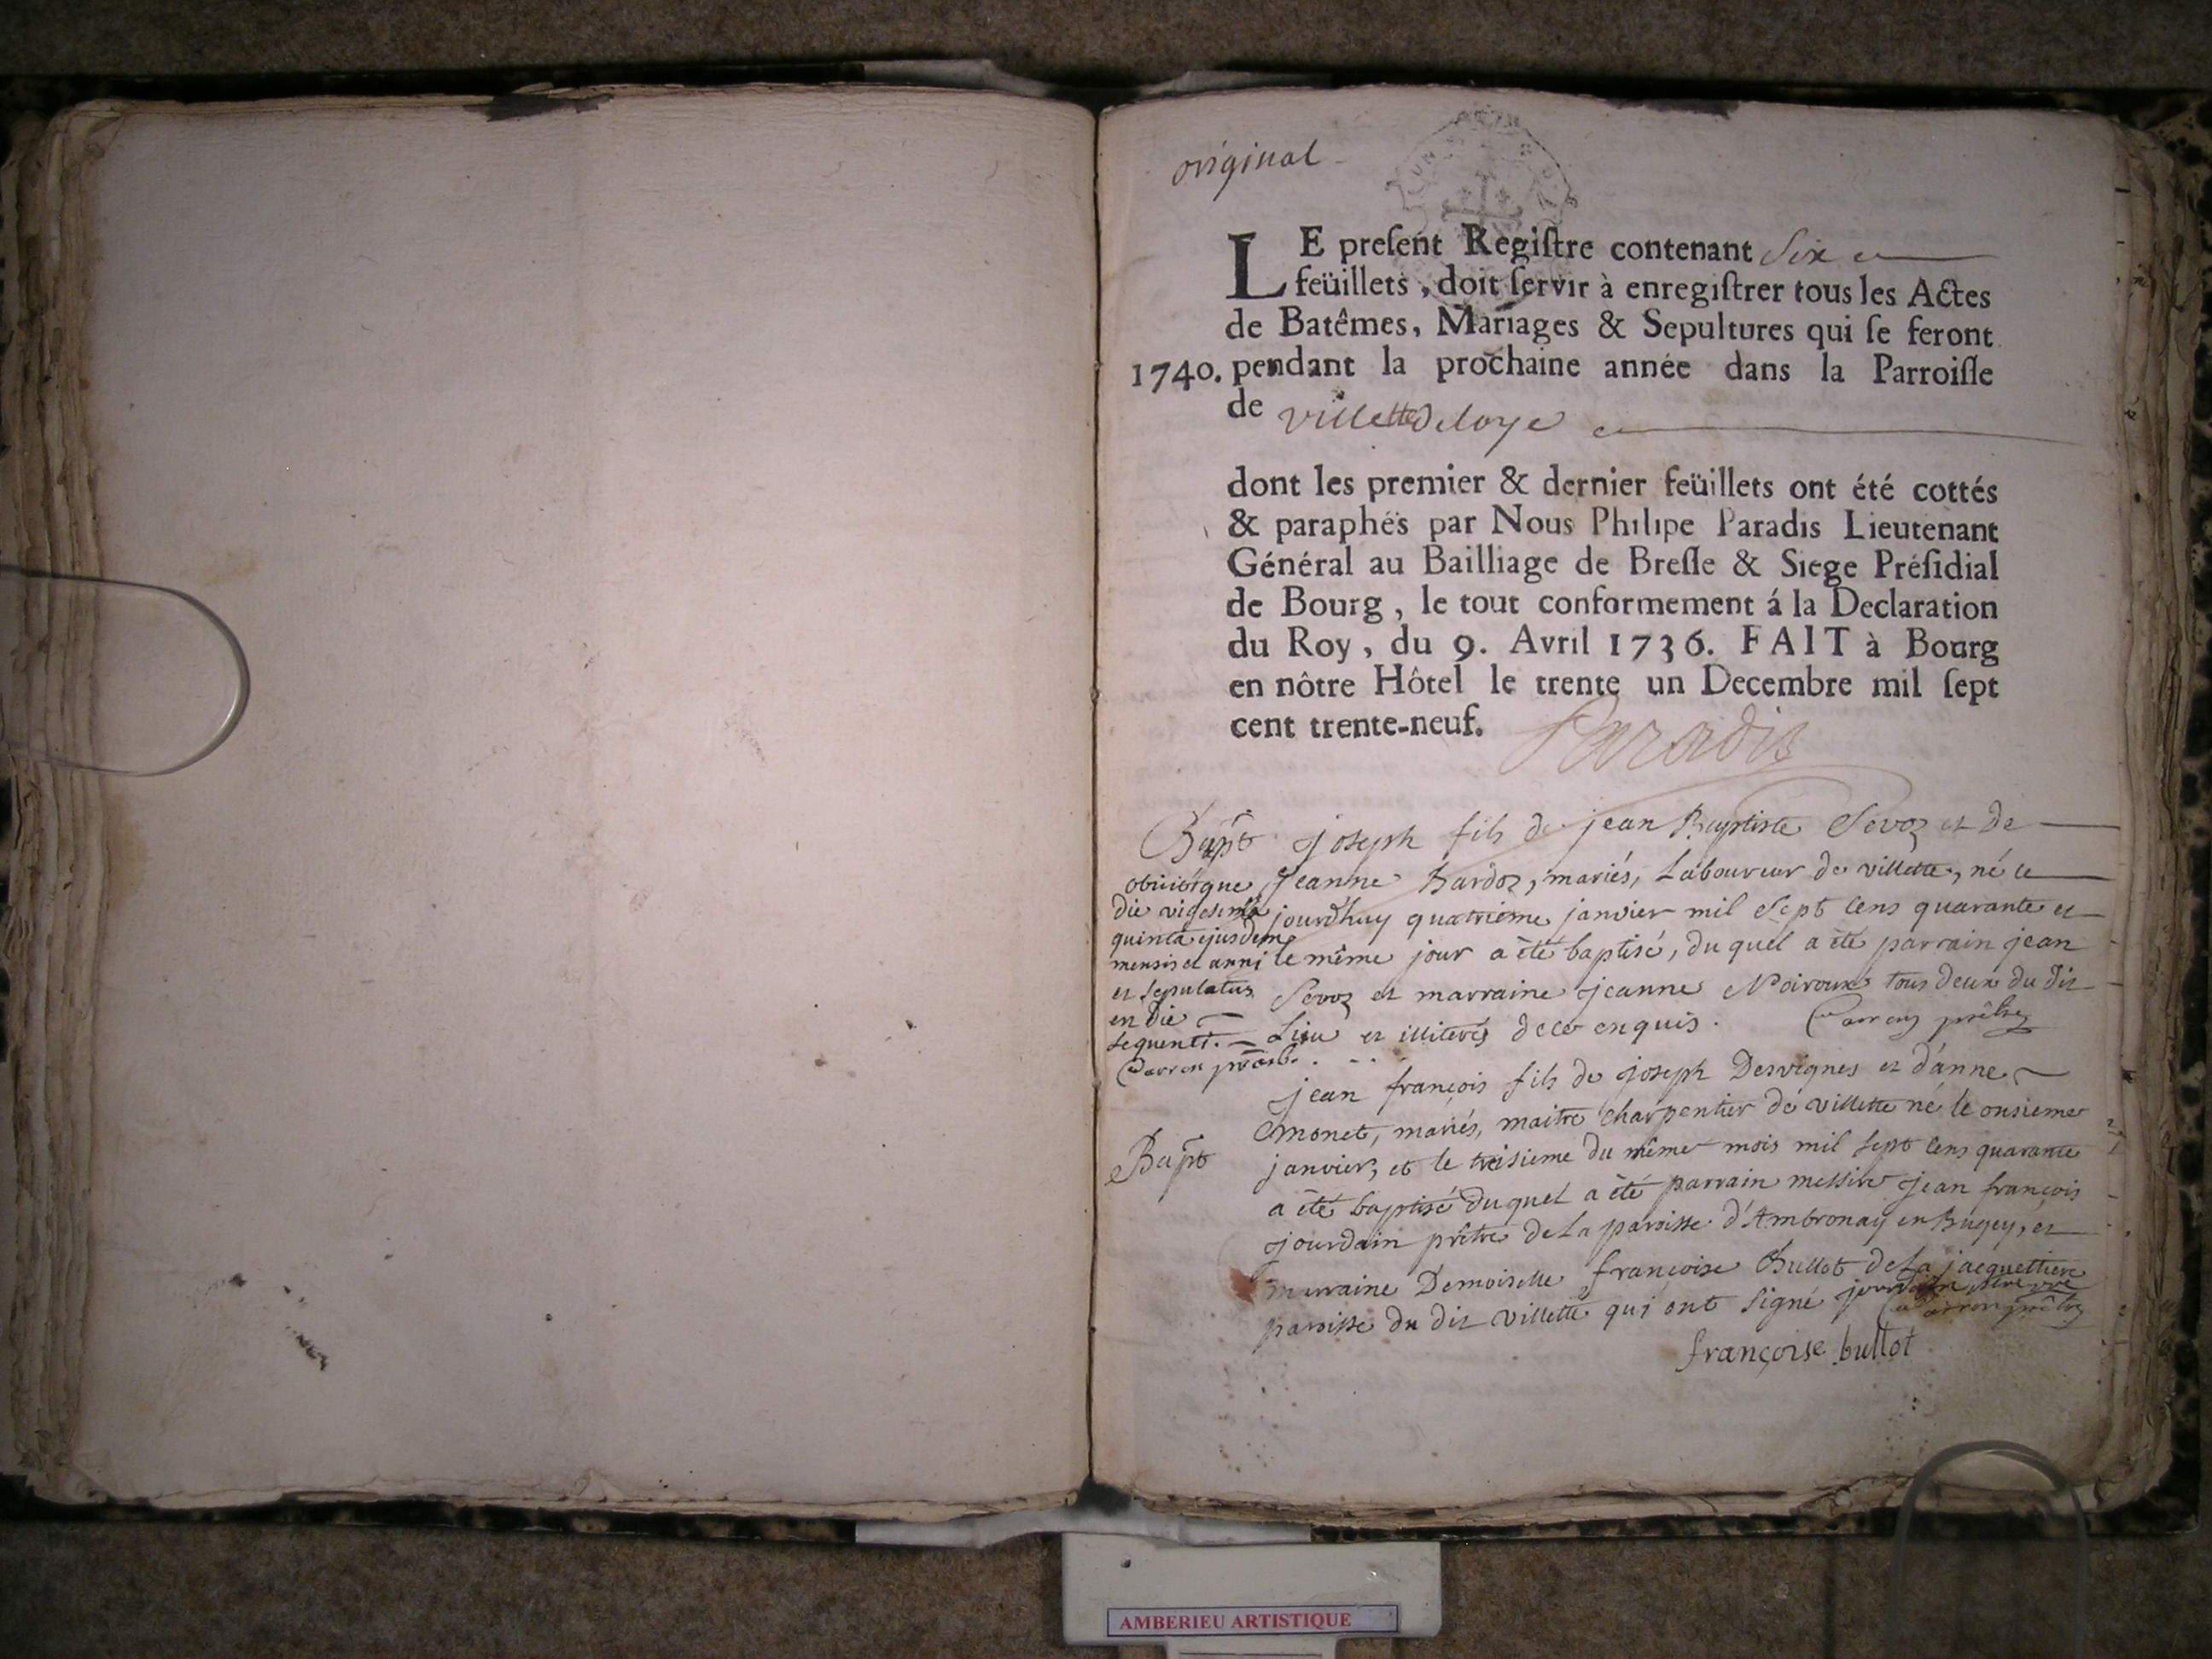 original
LE preſent Regiſtre contenant Six
feüillets, doit ſervir à enregiſtrer tous les Actes
de Batêmes, Mariages & Sepultures qui ſe feront
1740. pendant la prochaine année dans la Parroiſſe
de villette de loye
dont les premier & dernier feüillets ont été cottés
& paraphés par Nous Philipe Paradis Lieutenant
Général au Bailliage de Breſſe & Siege Préſidial
de Bourg, le tout conformement á la Declaration
du Roy, du 9. Avril 1736. FAIT à Bourg
en nôtre Hôtel le trente un Decembre mil ſept
cent trente-neuf.
Paradis
Bapt
obiitque
die vigesima
quinta ejusdem
mensis et anni
et sepultus
en die
sequenti.
Carron presb.
joseph fils de jean Baptiste Sevoz et de
Jeanne Bardoz, mariés, Laboureur de villette, né le
jourdhuy quatrieme janvier mil Sept cens quarante et
le même jour a été baptisé, du quel a été parrain jean
Sevoz et marraine jeanne Noiroux tous deux du dit
Lieu et illiterés de ce enquis. Carron prêtre
Bapt
jean françois fils de joseph Desvignes et d'anne
Monet, mariés, maitre charpentier de villette né le onsieme
janvier, et le treisieme du même mois mil sept cens quarante
a été baptisé duquel a été parrain messire jean françois
jourdain prêtre de La paroisse d'Ambronay en Bugey, et
marraine Demoiselle françoise Bullot de La jacquettiere
paroisse du dit villette qui ont signé jourdain
Carron prêtre
françoise bullot
AMBERIEU ARTISTIQUE